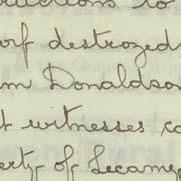 ructions to
orf destroyed
m Donaldson
t witnesses co
erty of Lecamp